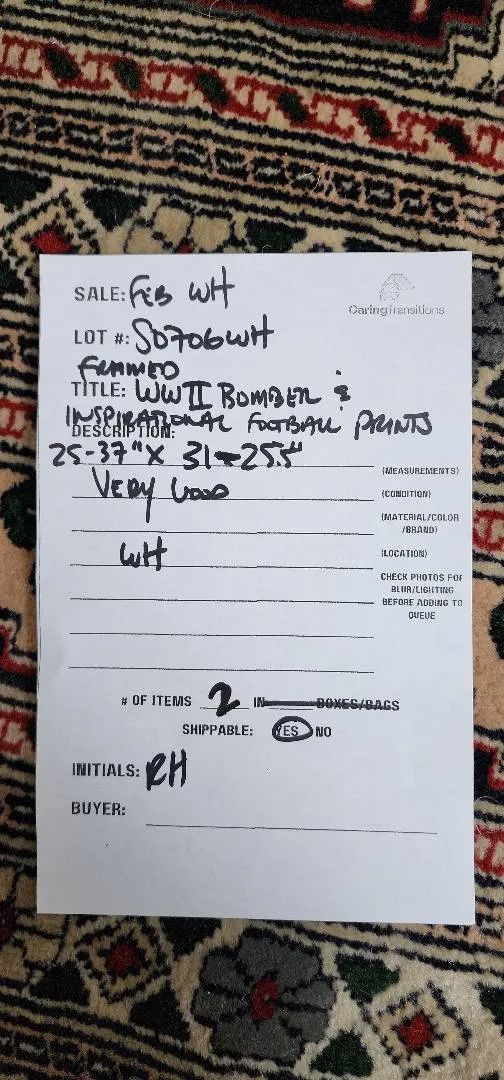 CaringTransitions
SALE: FEB WH
LOT #: S0706WH
FRAMED
TITLE: WWII BOMBER &
INSPIRATIONAL FOOTBALL PRINTS
DESCRIPTION:
25-37" X 31-25.5"
(MEASUREMENTS)
VERY GOOD
(CONDITION)
(MATERIAL/COLOR
/BRAND)
WH
(LOCATION)
CHECK PHOTOS FOR
BLUR/LIGHTING
BEFORE ADDING TO
QUEUE
# OF ITEMS 2 IN BOXES/BAGS
SHIPPABLE: YES NO
INITIALS: RH
BUYER: